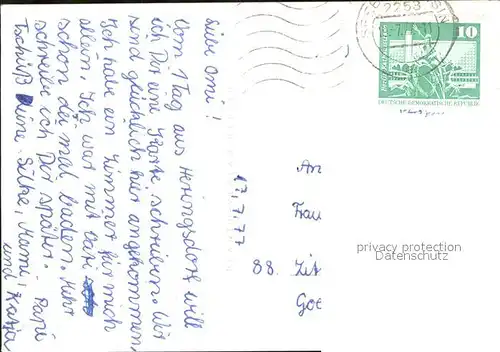 Liebe Omi!
Vom 1 Tag aus Heringsdorf will
ich Dir eine Karte schreiben. Wir
sind glücklich hier angekommen,
Ich habe ein Zimmer für mich
allein. Ich war mit Papi
schon drei mal baden. Mehr
schreibe ich Dir später.
Tschüß Deine Silke, Mami, Papi
und Katja
17.7.77
An
Frau
88. Zit
Goe
2253
10
DEUTSCHE DEMOKRATISCHE REPUBLIK
privacy protection
Datenschutz